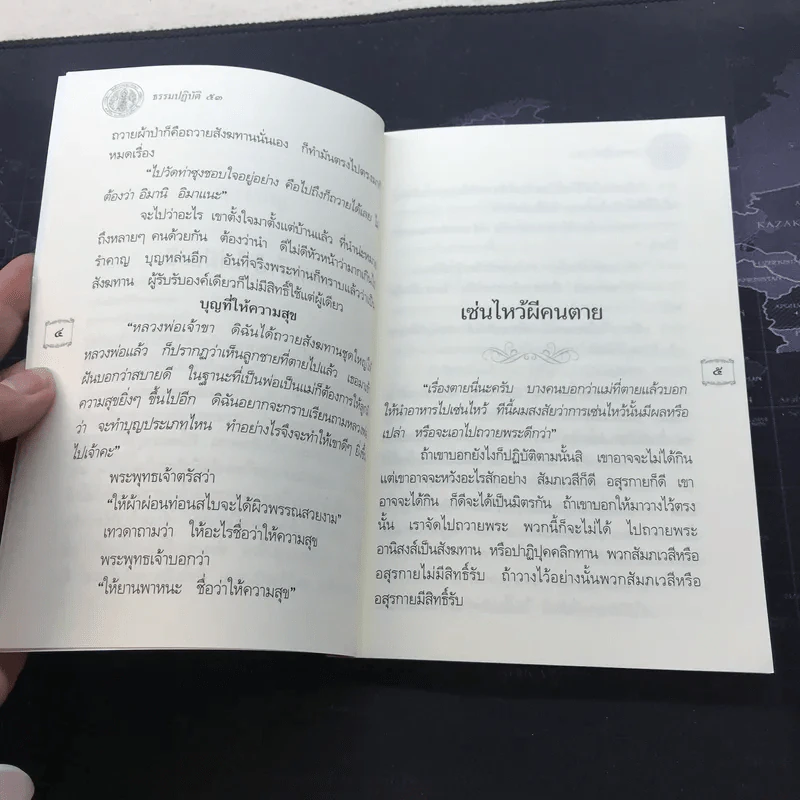 ธรรมปฏิบัติ ๕๓
ถวายผ้าป่าก็คือถวายสังฆทานนั่นเอง ก็ทำมันตรงไปตรงมา
หมดเรื่อง
“ไปวัดท่าซุงชอบใจอยู่อย่าง คือไปถึงก็ถวายได้เลย
ต้องว่า อิมานิ อิมาแนะ”
จะไปว่าอะไร เขาตั้งใจมาตั้งแต่บ้านแล้ว ที่นำน่ะ
ถึงหลายๆ คนด้วยกัน ต้องว่านำ ดีไม่ดีหัวหน้าว่ามากเกินไป
รำคาญ บุญหล่นอีก อันที่จริงพระท่านก็ทราบแล้วว่าเป็น
สังฆทาน ผู้รับรับองค์เดียวก็ไม่มีสิทธิ์ใช้แต่ผู้เดียว
บุญที่ให้ความสุข
“หลวงพ่อเจ้าขา ดิฉันได้ถวายสังฆทานชุดใหญ่
หลวงพ่อแล้ว ก็ปรากฏว่าเห็นลูกชายที่ตายไปแล้ว เธอมา
ฝันบอกว่าสบายดี ในฐานะที่เป็นพ่อเป็นแม่ก็ต้องการให้ลูก
ความสุขยิ่งๆ ขึ้นไปอีก ดิฉันอยากจะกราบเรียนถามหลวงพ่อ
ว่า จะทำบุญประเภทไหน ทำอย่างไรจึงจะทำให้เขาดีๆ ยิ่งขึ้น
ไปเจ้าคะ”
พระพุทธเจ้าตรัสว่า
“ให้ผ้าผ่อนท่อนสไบจะได้ผิวพรรณสวยงาม”
เทวดาถามว่า ให้อะไรชื่อว่าให้ความสุข
พระพุทธเจ้าบอกว่า
“ให้ยานพาหนะ ชื่อว่าให้ความสุข”
๔
เซ่นไหว้ผีคนตาย
“เรื่องตายนี่นะครับ บางคนบอกว่าแม่ที่ตายแล้วบอก
ให้นำอาหารไปเซ่นไหว้ ทีนี้ผมสงสัยว่าการเซ่นไหว้นั้นมีผลหรือ
เปล่า หรือจะเอาไปถวายพระดีกว่า”
ถ้าเขาบอกยังไงก็ปฏิบัติตามนั้นสิ เขาอาจจะไม่ได้กิน
แต่เขาอาจจะหวังอะไรสักอย่าง สัมภเวสีก็ดี อสุรกายก็ดี เขา
อาจจะได้กิน ก็ดีจะได้เป็นมิตรกัน ถ้าเขาบอกให้มาวางไว้ตรง
นั้น เราจัดไปถวายพระ พวกนี้ก็จะไม่ได้ ไปถวายพระ
อานิสงส์เป็นสังฆทาน หรือปาฏิปุคคลิกทาน พวกสัมภเวสีหรือ
อสุรกายไม่มีสิทธิ์รับ ถ้าวางไว้อย่างนั้นพวกสัมภเวสีหรือ
อสุรกายมีสิทธิ์รับ
๕
KAZAK